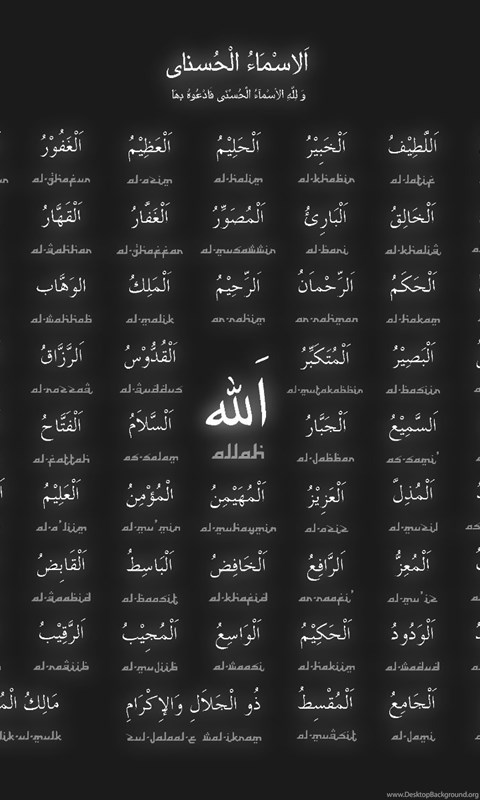 اَلاِسْمَاءُ الْحُسنای
وَ لِلّٰهِ الاَسْمَاءُ الْحُسْنٰى فَادْعُوهُ بِهَا
اَللَّطِيْفُ اَلْخَبِيْرُ اَلْحَلِيْمُ اَلْعَظِيْمُ اَلْغَفُوْرُ
al-ghafur al-azim al-halim al-khabir al-latif
اَلْخَالِقُ اَلْبَارِئُ اَلْمُصَوِّرُ اَلْغَفَّارُ اَلْقَهَّارُ
al-qahhar al-ghaffar al-musawwir al-bari al-khaliq
اَلْحَكَمُ اَلرَّحْمَانُ اَلرَّحِيْمُ اَلْمَلِكُ الوَهَّاب
al-wahhab al-malik ar-rahim ar-rahman al-hakam
اَلْبَصِيْرُ اَلْمُتَكَبِّرُ اَلْقُدُّوْسُ اَلرَّزَّاقُ
al-razzaq al-quddus al-mutakabbir al-basiir
اَلله
allah
اَلسَّمِيْعُ اَلْجَبَّارُ اَلسَّلاَمُ اَلْفَتَّاحُ
al-fattah as-salam al-jabbar as-sami'
اَلْمُذِلَّ اَلْعَزِيْزُ اَلْمُهَيْمِنُ اَلْمُؤْمِنُ اَلْعَلِيْمُ
al-a'liim al-mu'min al-muhaymin al-aziz al-muzil
اَلْمُعِزُّ اَلرَّافِعُ اَلْخَافِضُ اَلْبَاسِطُ اَلْقَابِضُ
al-qaabid al-baasit al-khafid ar-raafi' al-mu'iz
اَلْوَدُودُ اَلْحَكِيْمُ اَلْوَاسِعُ اَلْمُجِيْبُ اَلرَّقِيْبُ
al-raqiib al-mujiib al-waasi al-hakiim al-wadud
اَلْجَامِعُ اَلْمُقْسِطُ ذُو الْجَلاَلِ وَالإِكْرَامِ مَالِكُ
lik-ul-mulk zul-jalaal-e wal-ikram al-muqsit al-jami
www.DesktopBackground.org